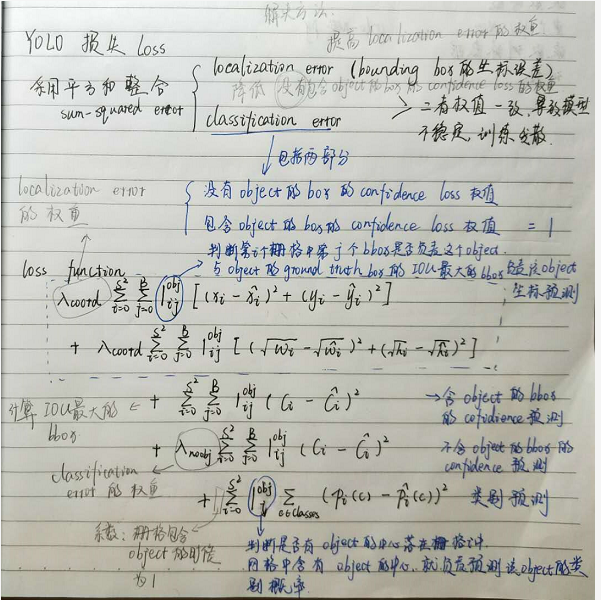 解决方法:
提高 localization error 的权重
YOLO 损失 Loss
localization error (bounding box的坐标误差)
采用平方和整合
降低 没有包含object的box的confidence loss的权重
sum-squared error
classification error
二者权值一致,导致模型
不稳定,训练发散.
包括两部分
localization error
的权重
没有object的box的confidence loss权值
包含object的box的confidence loss权值 = 1
判断第i个栅格中第j个bbox是否负责这个object.
与object的ground truth box的IOU最大的bbox负责该object
loss function
λcoord Σ_{i=0}^{S²} Σ_{j=0}^{B} 1_{ij}^{obj} [(xi - x̂i)² + (yi - ŷi)²]
坐标预测
+ λcoord Σ_{i=0}^{S²} Σ_{j=0}^{B} 1_{ij}^{obj} [(√wi - √ŵi)² + (√hi - √ĥi)²]
+ Σ_{i=0}^{S²} Σ_{j=0}^{B} 1_{ij}^{obj} (Ci - Ĉi)²
→含object的bbox
的cofidience预测
计算IOU最大的
bbox
+ λnoobj Σ_{i=0}^{S²} Σ_{j=0}^{B} 1_{ij}^{obj} (Ci - Ĉi)²
不含object的bbox的
confidence预测
classification
error的权重
+ Σ_{i=0}^{S²} 1_{i}^{obj} Σ_{c∈classes} (pi(c) - p̂i(c))² 类别预测
系数:栅格包含
object的时候
为1
判断是否有object的中心落在栅格i中.
网格中含有object的中心,就负责预测该object的类
别概率.